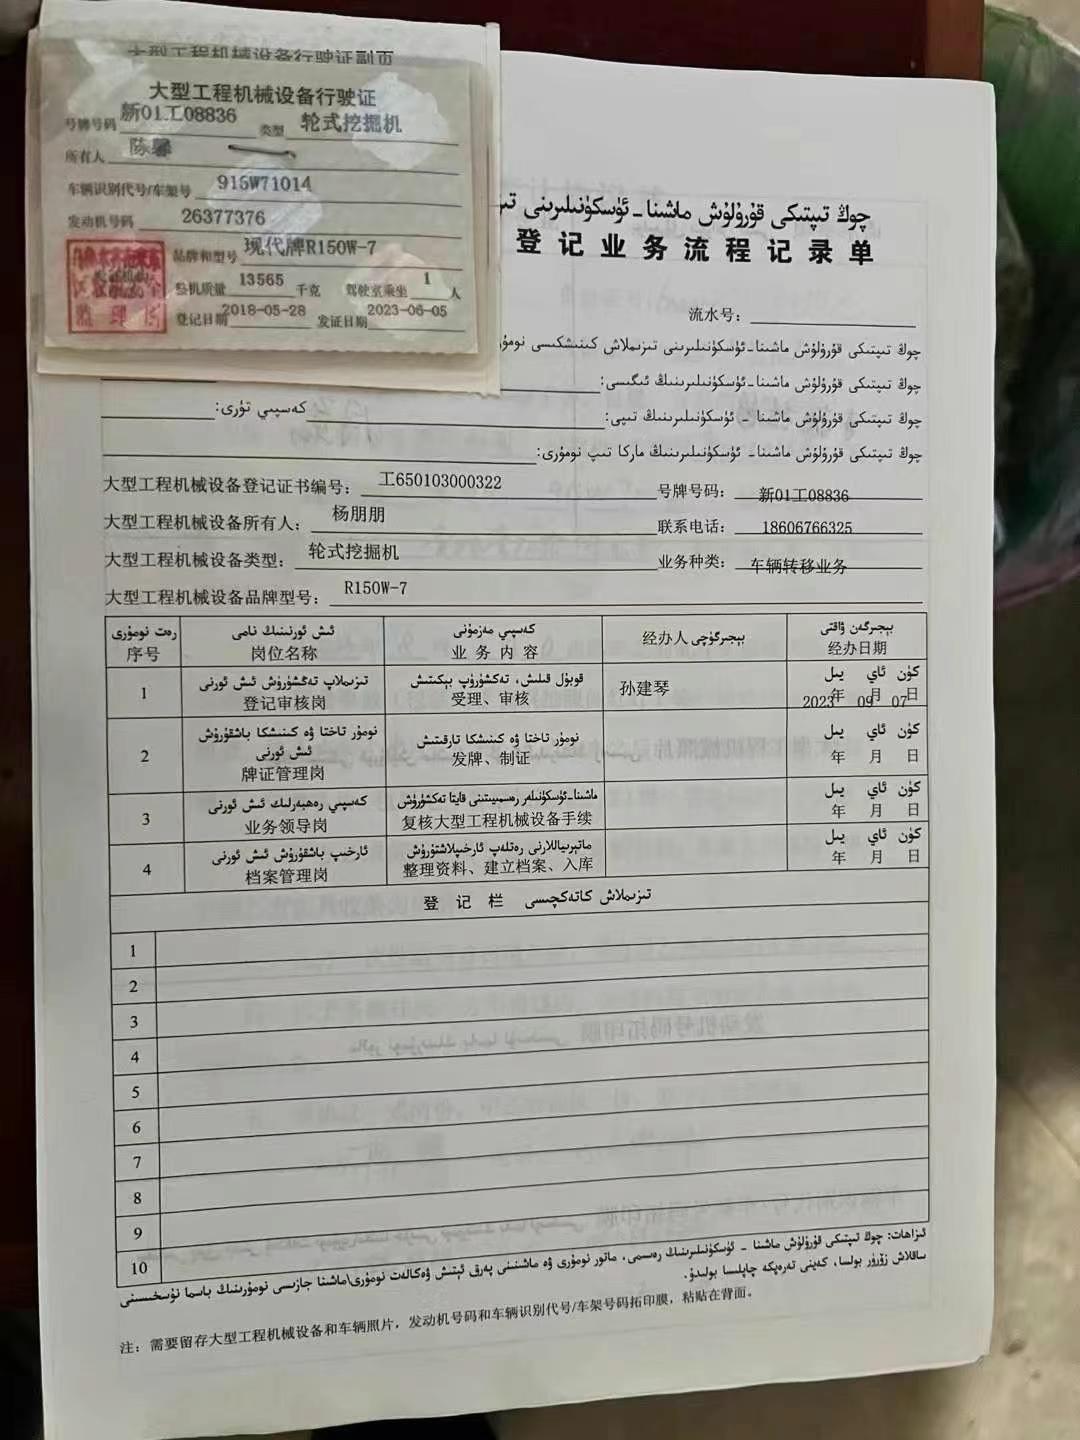 大型工程机械设备行驶证副页
大型工程机械设备行驶证
号牌号码 新01工08836 类型 轮式挖掘机
所有人 陈馨
车辆识别代号/车架号 915W71014
发动机号码 26377376
品牌和型号 现代牌R150W-7
整机质量 13565 千克 驾驶室乘坐 1 人
登记日期 2018-05-28 发证日期 2023-06-05
چوڭ تىپتىكى قۇرۇلۇش ماشىنا-ئۈسكۈنىلىرىنى
登记业务流程记录单
流水号：
چوڭ تىپتىكى قۇرۇلۇش ماشىنا-ئۈسكۈنىلىرىنى تىزىملاش كىنىشكىسى
چوڭ تىپتىكى قۇرۇلۇش ماشىنا-ئۈسكۈنىلىرىنىڭ ئىگىسى:
چوڭ تىپتىكى قۇرۇلۇش ماشىنا - ئۈسكۈنىلىرىنىڭ تىپى: كەسپىي تۈرى:
چوڭ تىپتىكى قۇرۇلۇش ماشىنا- ئۈسكۈنىلىرىنىڭ ماركا تىپ نومۇرى:
大型工程机械设备登记证书编号： 工650103000322 号牌号码： 新01工08836
大型工程机械设备所有人： 杨朋朋 联系电话： 18606766325
大型工程机械设备类型： 轮式挖掘机 业务种类： 车辆转移业务
大型工程机械设备品牌型号： R150W-7
رەت نومۇرى ئىش ئورنىنىڭ نامى كەسپىي مەزمۇنى 经办人 بېجىرگۈچى بېجىرگەن ۋاقتى
序号 岗位名称 业务内容 经办日期
1 تىزىملاپ تەكشۈرۈش ئىش ئورنى قوبۇل قىلىش، تەكشۈرۈپ بېكىتىش 孙建琴 كۈن ئاي يىل
登记审核岗 受理、审核 2023年 09月 07日
2 نومۇر تاختا ۋە كىنىشكا باشقۇرۇش نومۇر تاختا ۋە كىنىشكا تارقىتىش كۈن ئاي يىل
ئىش ئورنى
牌证管理岗 发牌、制证 年 月 日
3 كەسپىي رەھبەرلىك ئىش ئورنى ماشىنا-ئۈسكۈنىلەر رەسمىيىتىنى قايتا تەكشۈرۈش كۈن ئاي يىل
业务领导岗 复核大型工程机械设备手续 年 月 日
4 ئارخىپ باشقۇرۇش ئىش ئورنى ماتېرىياللارنى رەتلەپ ئارخىپلاشتۇرۇش كۈن ئاي يىل
档案管理岗 整理资料、建立档案、入库 年 月 日
登记栏 تىزىملاش كاتەكچىسى
1
2
3
4
5
6
7
8
9
10
ئىزاھات: چوڭ تىپتىكى قۇرۇلۇش ماشىنا - ئۈسكۈنىلىرىنىڭ رەسىمى، ماتور نومۇرى ۋە ماشىنىنى پەرق ئېتىش ۋەكالەت نومۇرى/ماشىنا جازىسى نومۇرىنىڭ باسما نۇسخىسىنى
ساقلاش زۆرۈر بولسا، كەينى تەرەپكە چاپلىسا بولىدۇ.
注：需要留存大型工程机械设备和车辆照片，发动机号码和车辆识别代号/车架号码拓印膜，粘贴在背面。